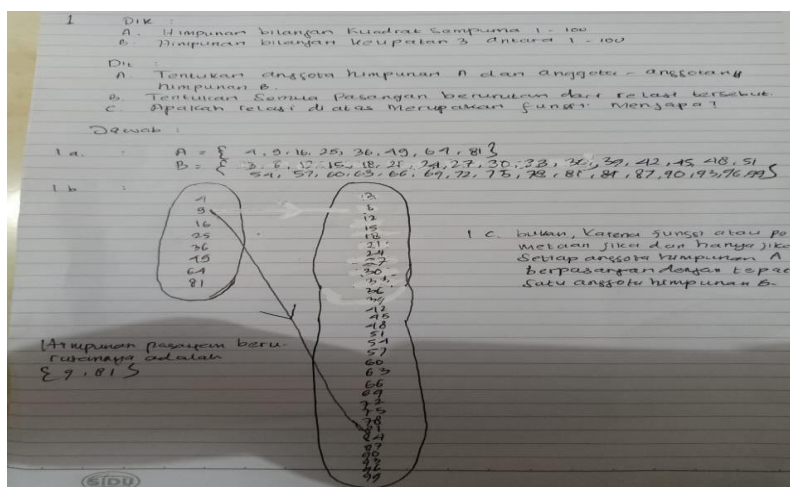 1 Dik :
A. Himpunan bilangan kuadrat sempurna 1 - 100
B. Himpunan bilangan kelipatan 3 antara 1 - 100
Dit :
A. Tentukan anggota himpunan A dan anggota - anggotany
himpunan B.
B. Tentukan semua pasangan berurutan dari relasi tersebut.
C. Apakah relasi di atas merupakan fungsi mengapa?
Jawab :
1a. : A = { 4, 9, 16, 25, 36, 49, 64, 81 }
B = { 3, 6, 12, 15, 18, 21, 24, 27, 30, 33, 36, 39, 42, 45, 48, 51
54, 57, 60, 63, 66, 69, 72, 75, 78, 81, 84, 87, 90, 93, 96, 99 }
1b :
4
9
16
25
36
49
64
81
3
6
12
15
18
21
24
27
30
33
36
39
42
45
48
51
54
57
60
63
66
69
72
75
78
81
84
87
90
93
96
99
1 C. bukan, karena fungsi atau pe
metaan jika dan hanya jika
setiap anggota himpunan A
berpasangan dengan tepat
satu anggota himpunan B.
Himpunan pasangan beru-
rutannya adalah
{ 9, 81 }
SIDU